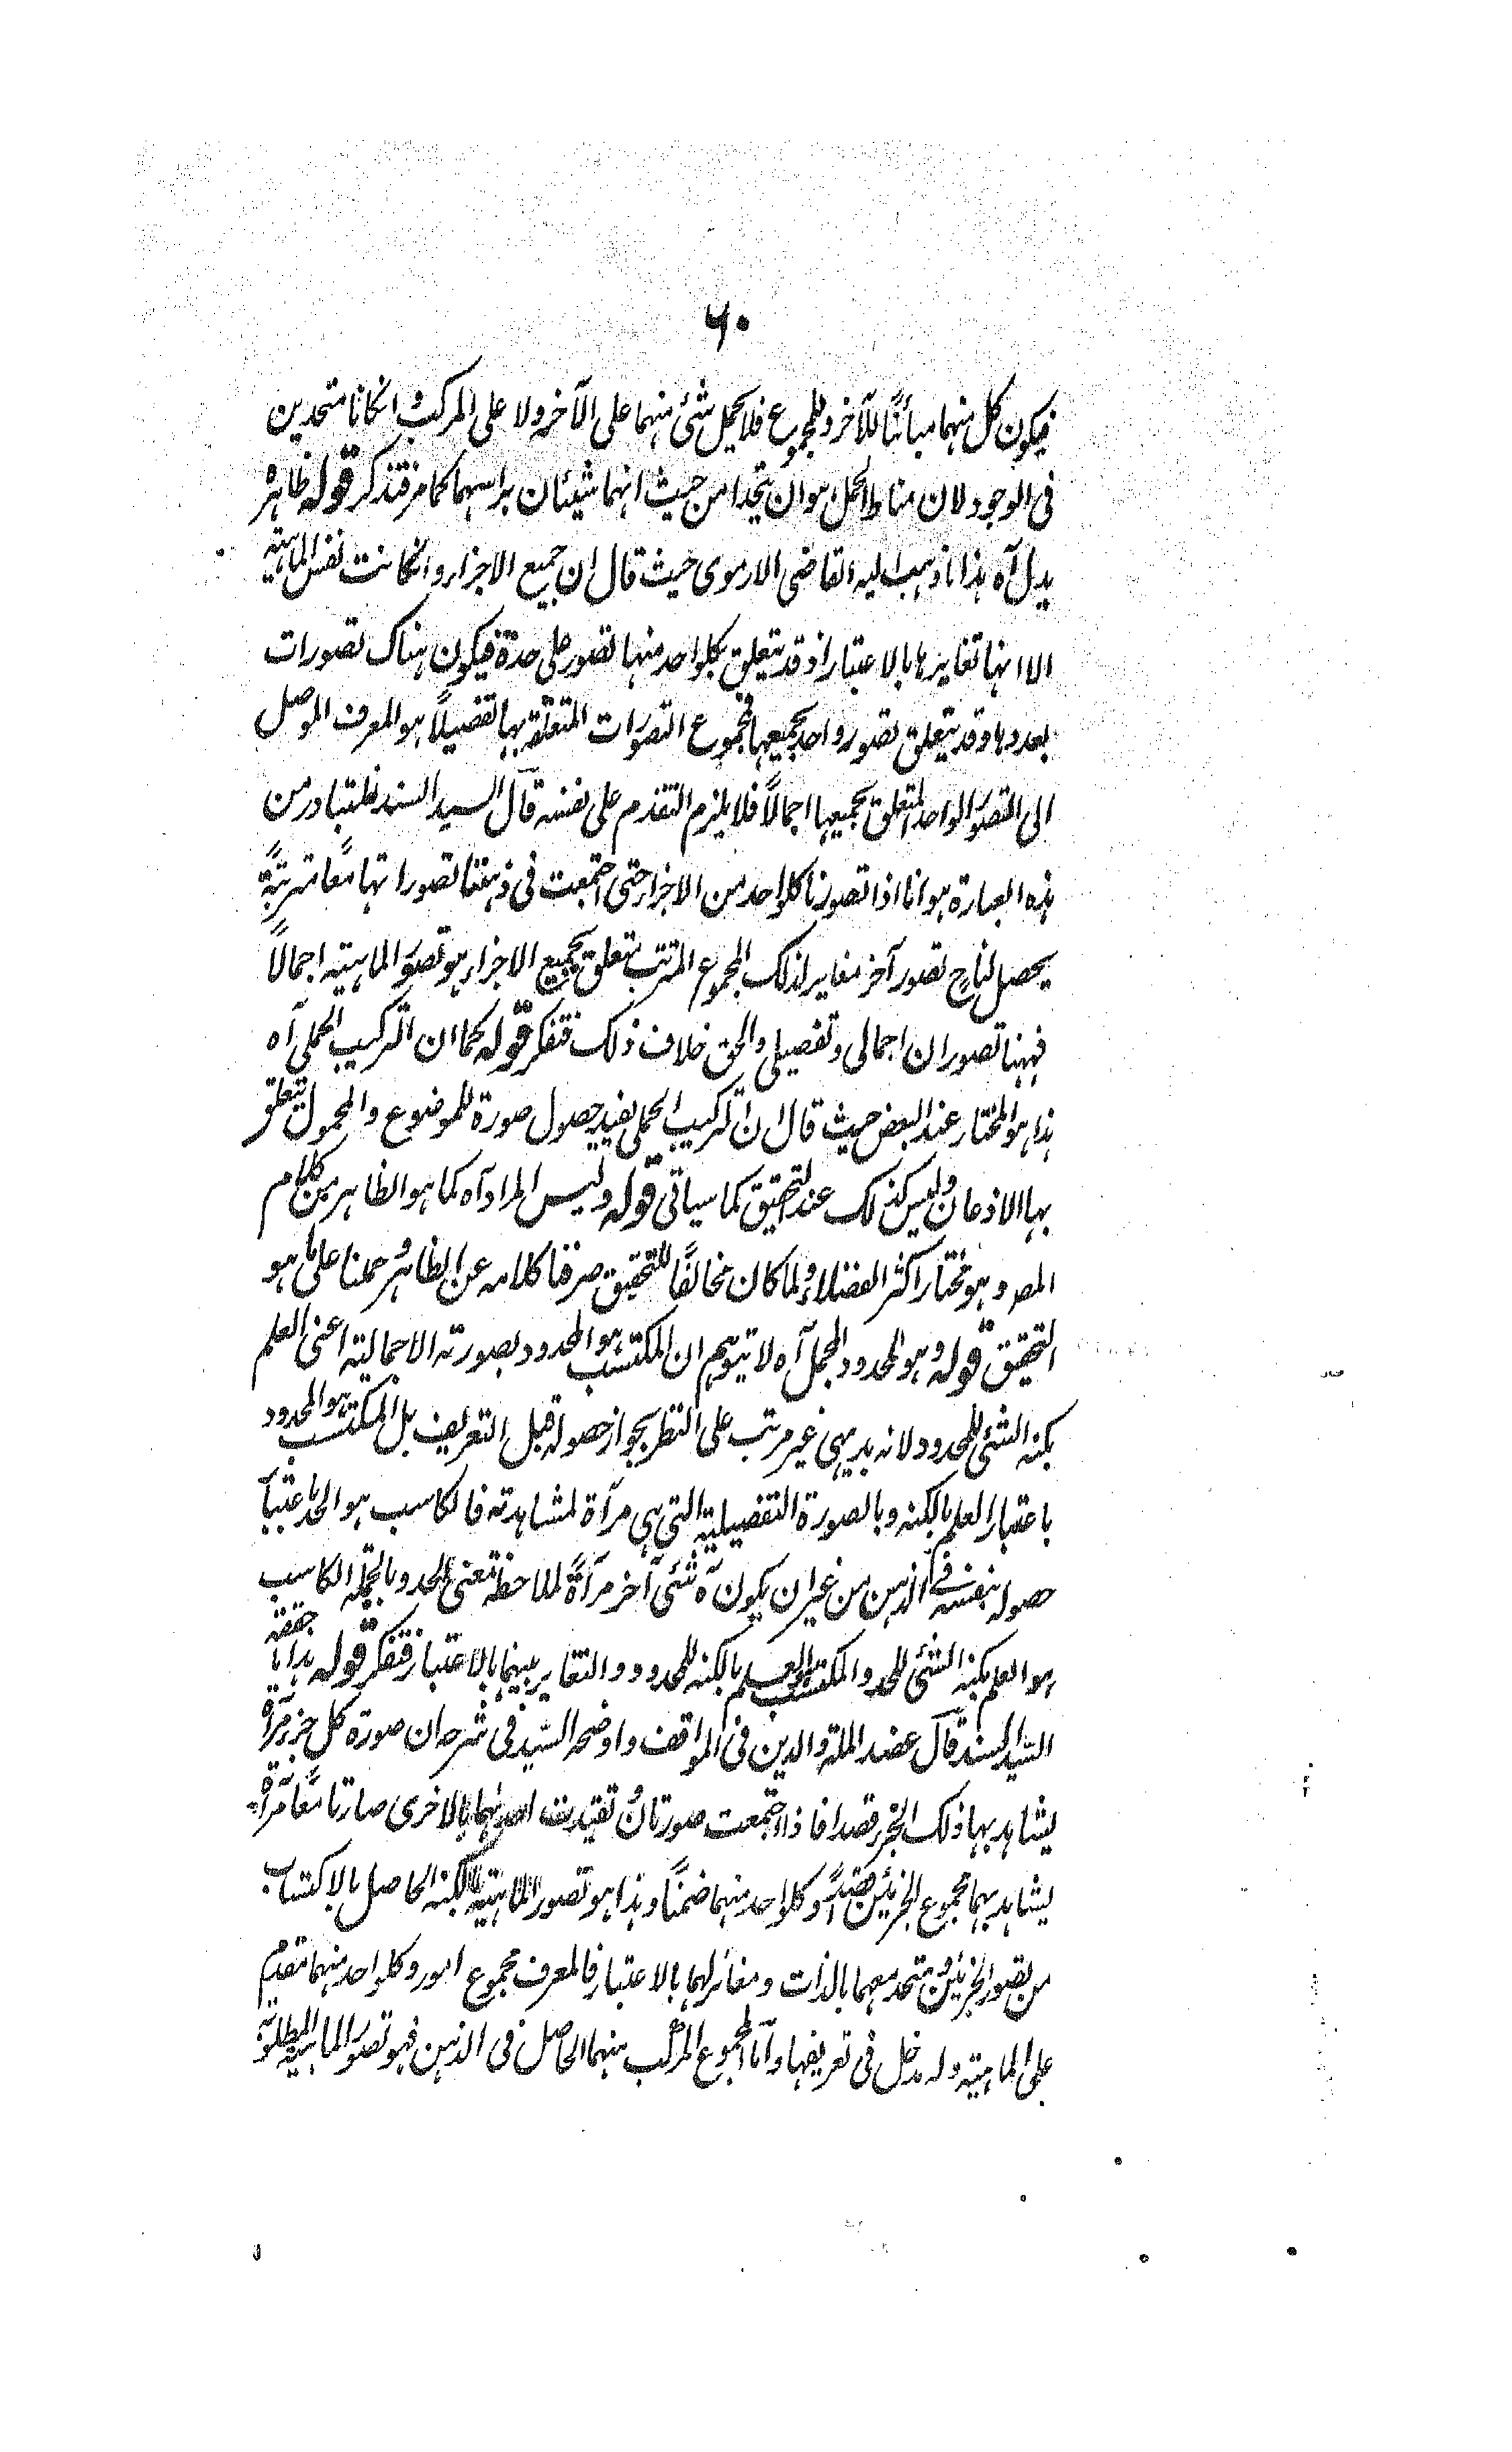 ٦٠
فيكون كل منهما مبائنًا للآخر وللمجموع فلا يحمل شئ منهما على الآخر ولا على المركب وانكانا متحدين
فى الوجود لان مناط الحمل هو ان يتحدا من حيث انهما شيئان براسهما كما مر فتذكر قوله ظاهره
يدل آه هذا ما ذهب اليه القاضى الارموى حيث قال ان جميع الاجزاء وانكانت نفس الماهية
الا انها تغايرها بالاعتبار اذ قد يتعلق بكلواحد منها تصور على حدة فيكون هناك تصورات
بعددها وقد يتعلق تصور واحد بجميعها فمجموع التصورات المتعلقة بها تفصيلاً هو المعرف الموصل
الى التصور الواحد المتعلق بجميعها اجمالاً فلا يلزم التقدم على نفسه قال السيد السند فلمتبادر من
هذه العبارة هو انا اذا تصورنا كلواحد من الاجزاء حتى اجتمعت فى ذهننا تصوراتها معًا مترتبةً
يحصل لناح تصور آخر مغاير لذلك المجموع المترتب متعلق بجميع الاجزاء هو تصور الماهية اجمالاً
فههنا تصوران اجمالى وتفصيلى والحق خلاف ذلك فتفكر قوله كما ان التركيب الحملى آه
هذا هو المختار عند البعض حيث قال ان التركيب الحملى يفيد حصول صورة للموضوع والمحمول يتعلق
بها الاذعان وليس كذلك عند التحقيق كما سياتى قوله وليس المراد آه كما هو الظاهر من كلام
المصر وهو مختار اكثر الفضلاء ولما كان مخالفًا للتحقيق صرفنا كلامه عن الظاهر وحملنا على ما هو
التحقيق قوله وهو المحدود المجمل آه لا يتوهم ان المكتسب هو المحدود بصورته الاجمالية اعنى العلم
بكنه الشئ للمحدود لانه بديهى غير مرتب على النظر بجواز حصوله قبل التعريف بل المكتسب هو المحدود
باعتبار العلم بالكنه وبالصورة التفصيلية التى هى مرآة لمشاهدته فالكاسب هو الحد باعتبار
حصوله بنفسه فى الذهن من غير ان يكون آه شئى آخر مرآةً للملاحظة تعنى للحد وبالجملة الكاسب
هو العلم بكنه الشئى للحد والمكتسب هو العلم بالكنه للمحدود والتغاير بينهما بالاعتبار فتفكر قوله هذا ما حققه
السيد السند قال عضد الملة والدين فى المواقف واوضحه السيد فى شرحه ان صورة كل جزء مرآة
يشاهد بها ذلك الجزء قصدا فاذا اجتمعت صورتان وتقيدت احدٰهما بالاخرى صارتا معًا مرآة
يشاهد بهما مجموع الجزئين قصدًا وكلواحد منهما ضمنًا وهذا هو تصور الماهية بالكنه الحاصل بالاكتساب
من تصور الجزئين ومتحد معهما بالذات ومغائر لهما بالاعتبار فالمعرف مجموع امور وكلواحد منهما مقدم
على الماهية وله مدخل فى تعريفها واما المجموع المركب منهما الحاصل فى الذهن فهو تصور الماهية المطلوبة